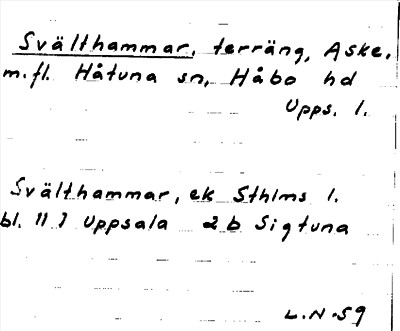 Svälthammar, terräng, Aske,
m.fl. Håtuna sn, Håbo hd
Upps. l.
Svälthammar, ek Sthlms l.
bl. 11 I Uppsala 2 b Sigtuna
L.N. 59